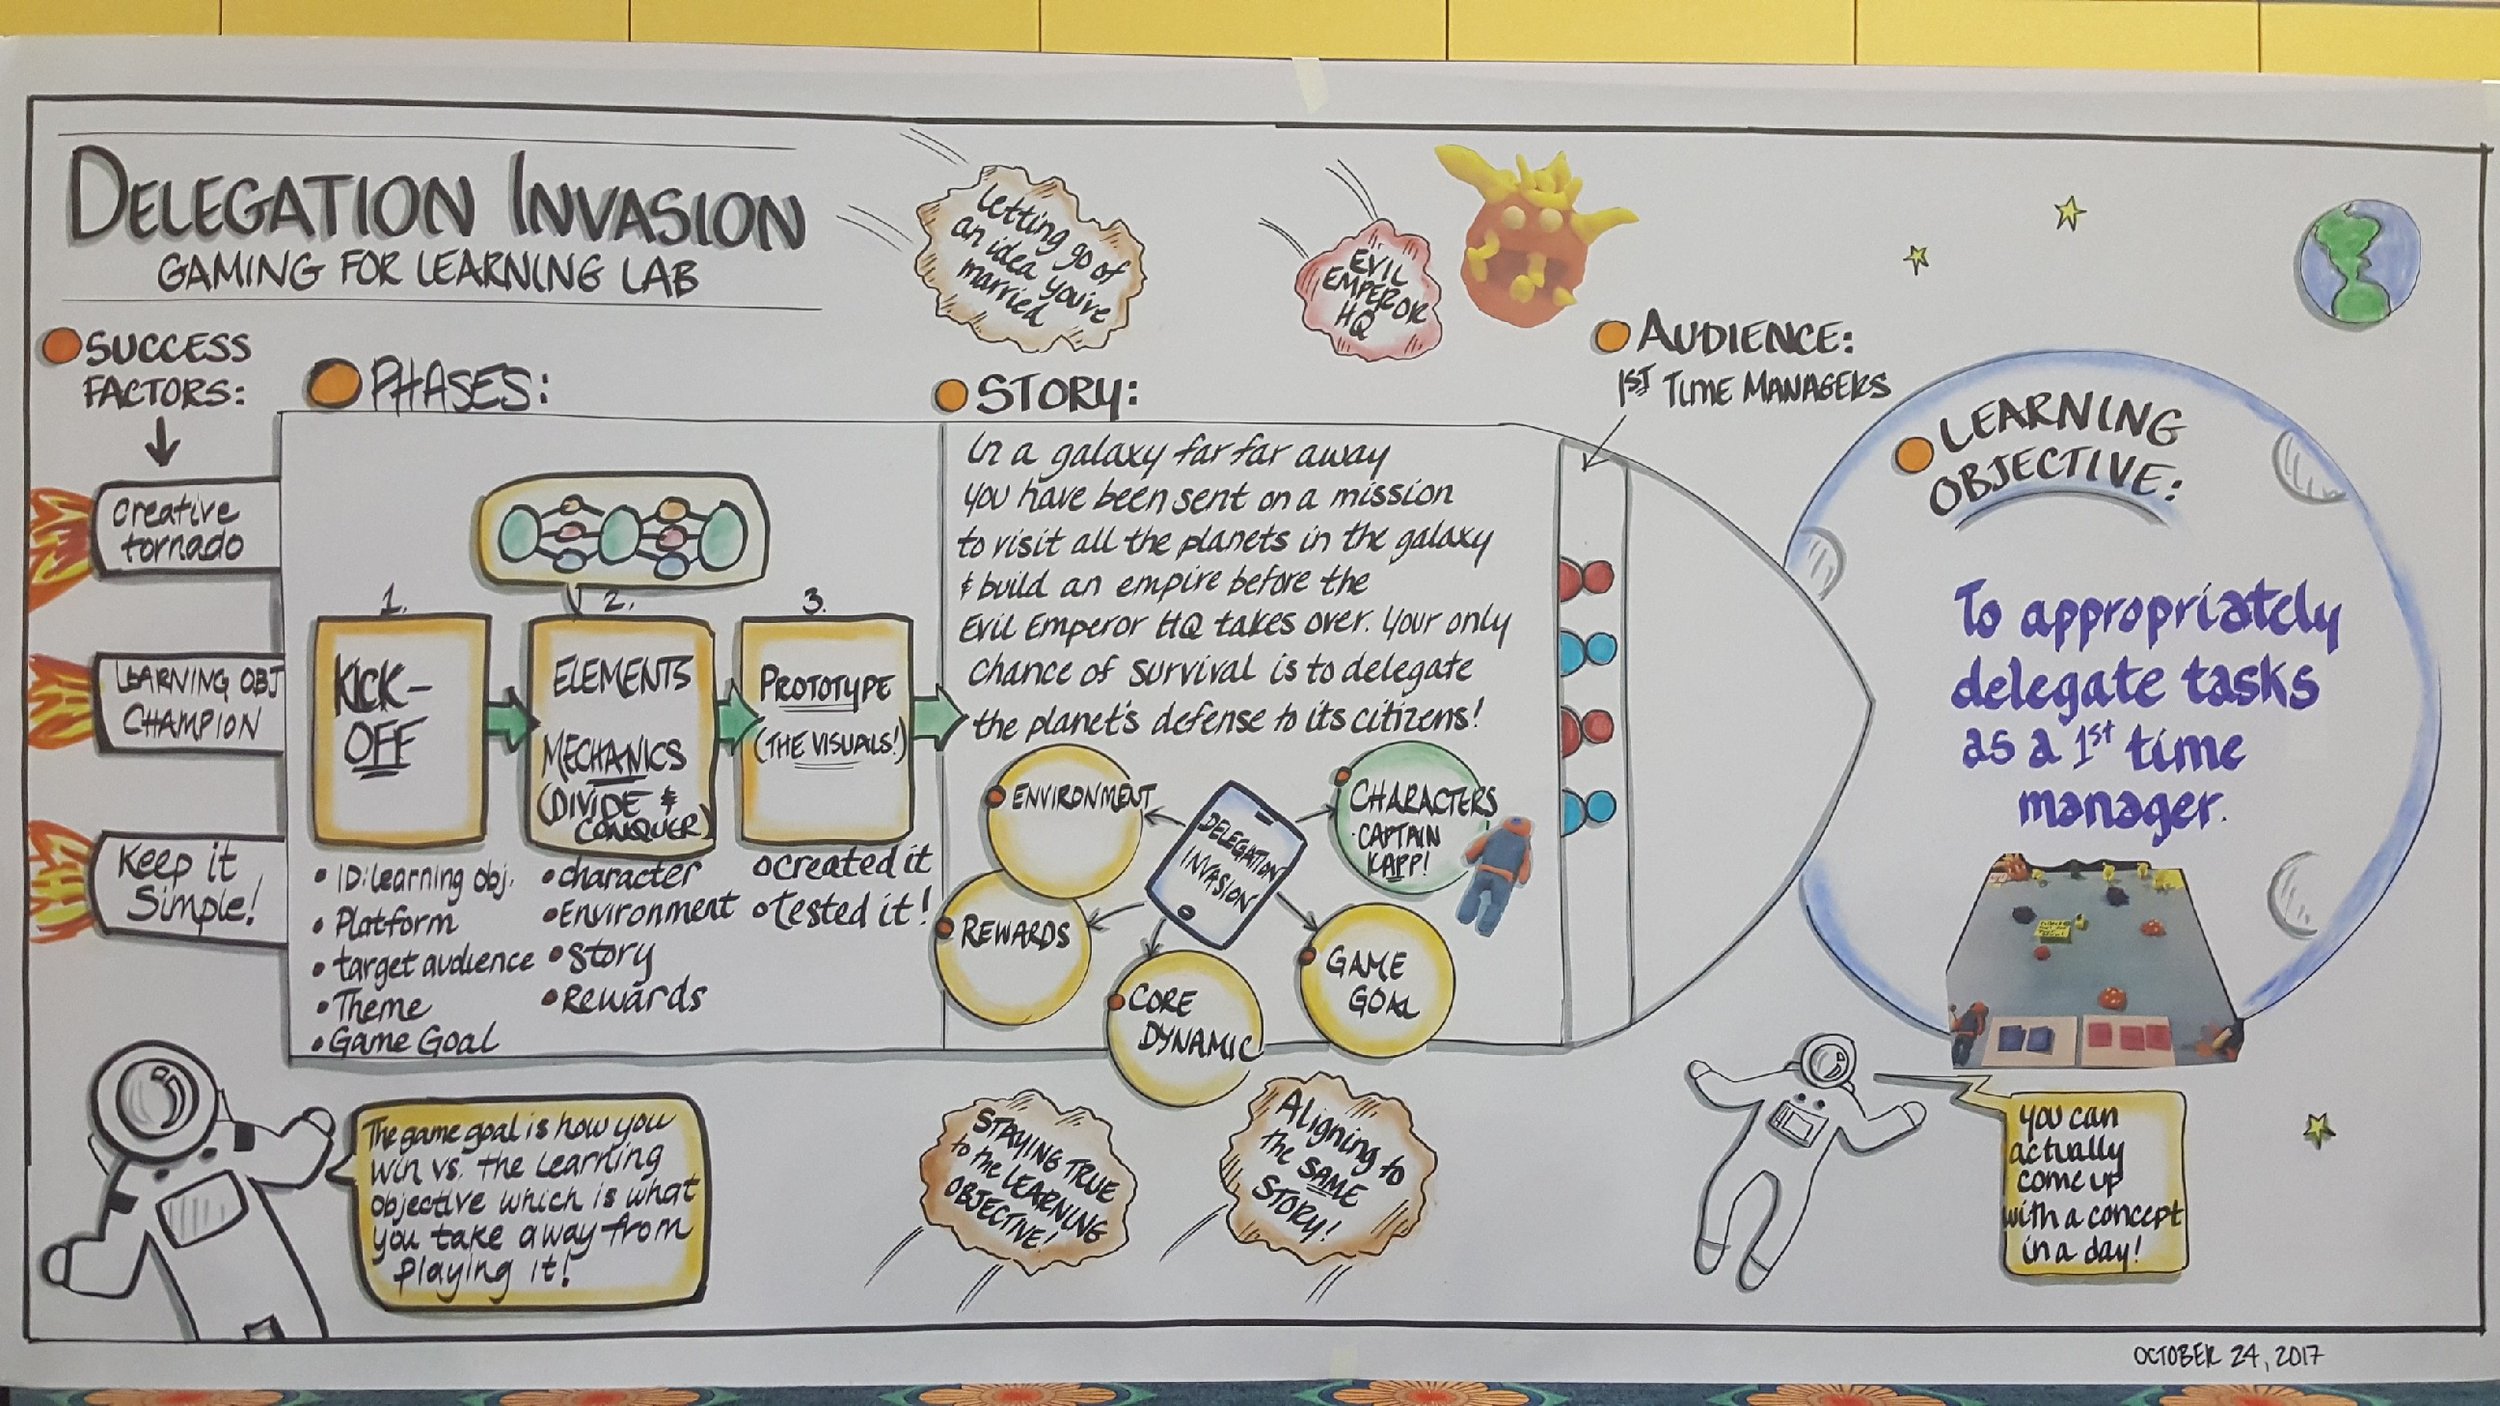 DELEGATION INVASION
GAMING FOR LEARNING LAB
Letting go of
an idea you've
married
EVIL
EMPEROR
HQ
SUCCESS
FACTORS:
creative
tornado
LEARNING OBJ
CHAMPION
Keep it
Simple!
PHASES:
1.
KICK-
OFF
• ID: learning obj.
• Platform
• target audience
• Theme
• Game Goal
2.
ELEMENTS
MECHANICS
(DIVIDE &
CONQUER)
• character
• Environment
• Story
• Rewards
3.
PROTOTYPE
(THE VISUALS!)
o created it
o Tested it!
STORY:
In a galaxy far far away
you have been sent on a mission
to visit all the planets in the galaxy
& build an empire before the
Evil Emperor HQ takes over. Your only
chance of survival is to delegate
the planet's defense to its citizens!
ENVIRONMENT
REWARDS
CORE
DYNAMIC
GAME
GOAL
CHARACTERS
CAPTAIN
KAPP!
DELEGATION
INVASION
AUDIENCE:
1ST TIME MANAGERS
LEARNING
OBJECTIVE:
To appropriately
delegate tasks
as a 1st time
manager.
The game goal is how you
win vs. the learning
objective which is what
you take away from
playing it!
STAYING TRUE
to the LEARNING
OBJECTIVE!
Aligning to
the SAME
STORY!
you can
actually
come up
with a concept
in a day!
OCTOBER 24, 2017